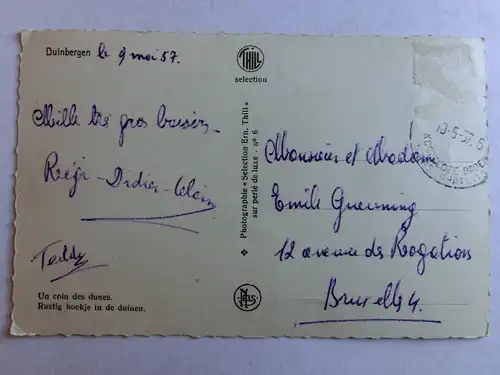 Duinbergen le 9 mai 57.
THILL
selection
Mille très gros baisers
Régi - Didier - Alain
Teddy
Un coin des dunes.
Rustig hoekje in de duinen.
✤ Photographie « Selection Ern. Thill »
sur perlé de luxe - nº 6
NELS
10-5-57
Monsieur et Madame
Emile
12 avenue des Rogation
Bruxelles 4.